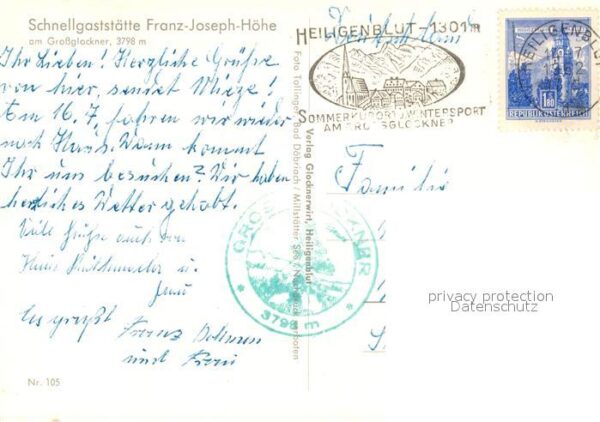 Schnellgaststätte Franz-Joseph-Höhe
am Großglockner, 3798 m
Ihr Lieben! Herzliche Grüße
von hier, sendet Mieze!
Am 16.7. fahren wir wieder
nach Haus. Wann kommt
Ihr uns besuchen? Wir haben
herrliches Wetter gehabt.
Viele Grüße auch von
Hans u.
Frau
Es grüßt Franz
und Frau
Nr. 105
Foto Tollinger, Bad Döbriach / Millstätter See / Nachdruck verboten
Verlag Glocknerwirt, Heiligenblut
GROSSGLOCKNER
* 3798 m *
HEILIGENBLUT-1301m
SOMMERKURORT WINTERSPORT
AM GROSSGLOCKNER
HEILIGENBLUT
1.80
REPUBLIK ÖSTERREICH
Familie
privacy protection
Datenschutz